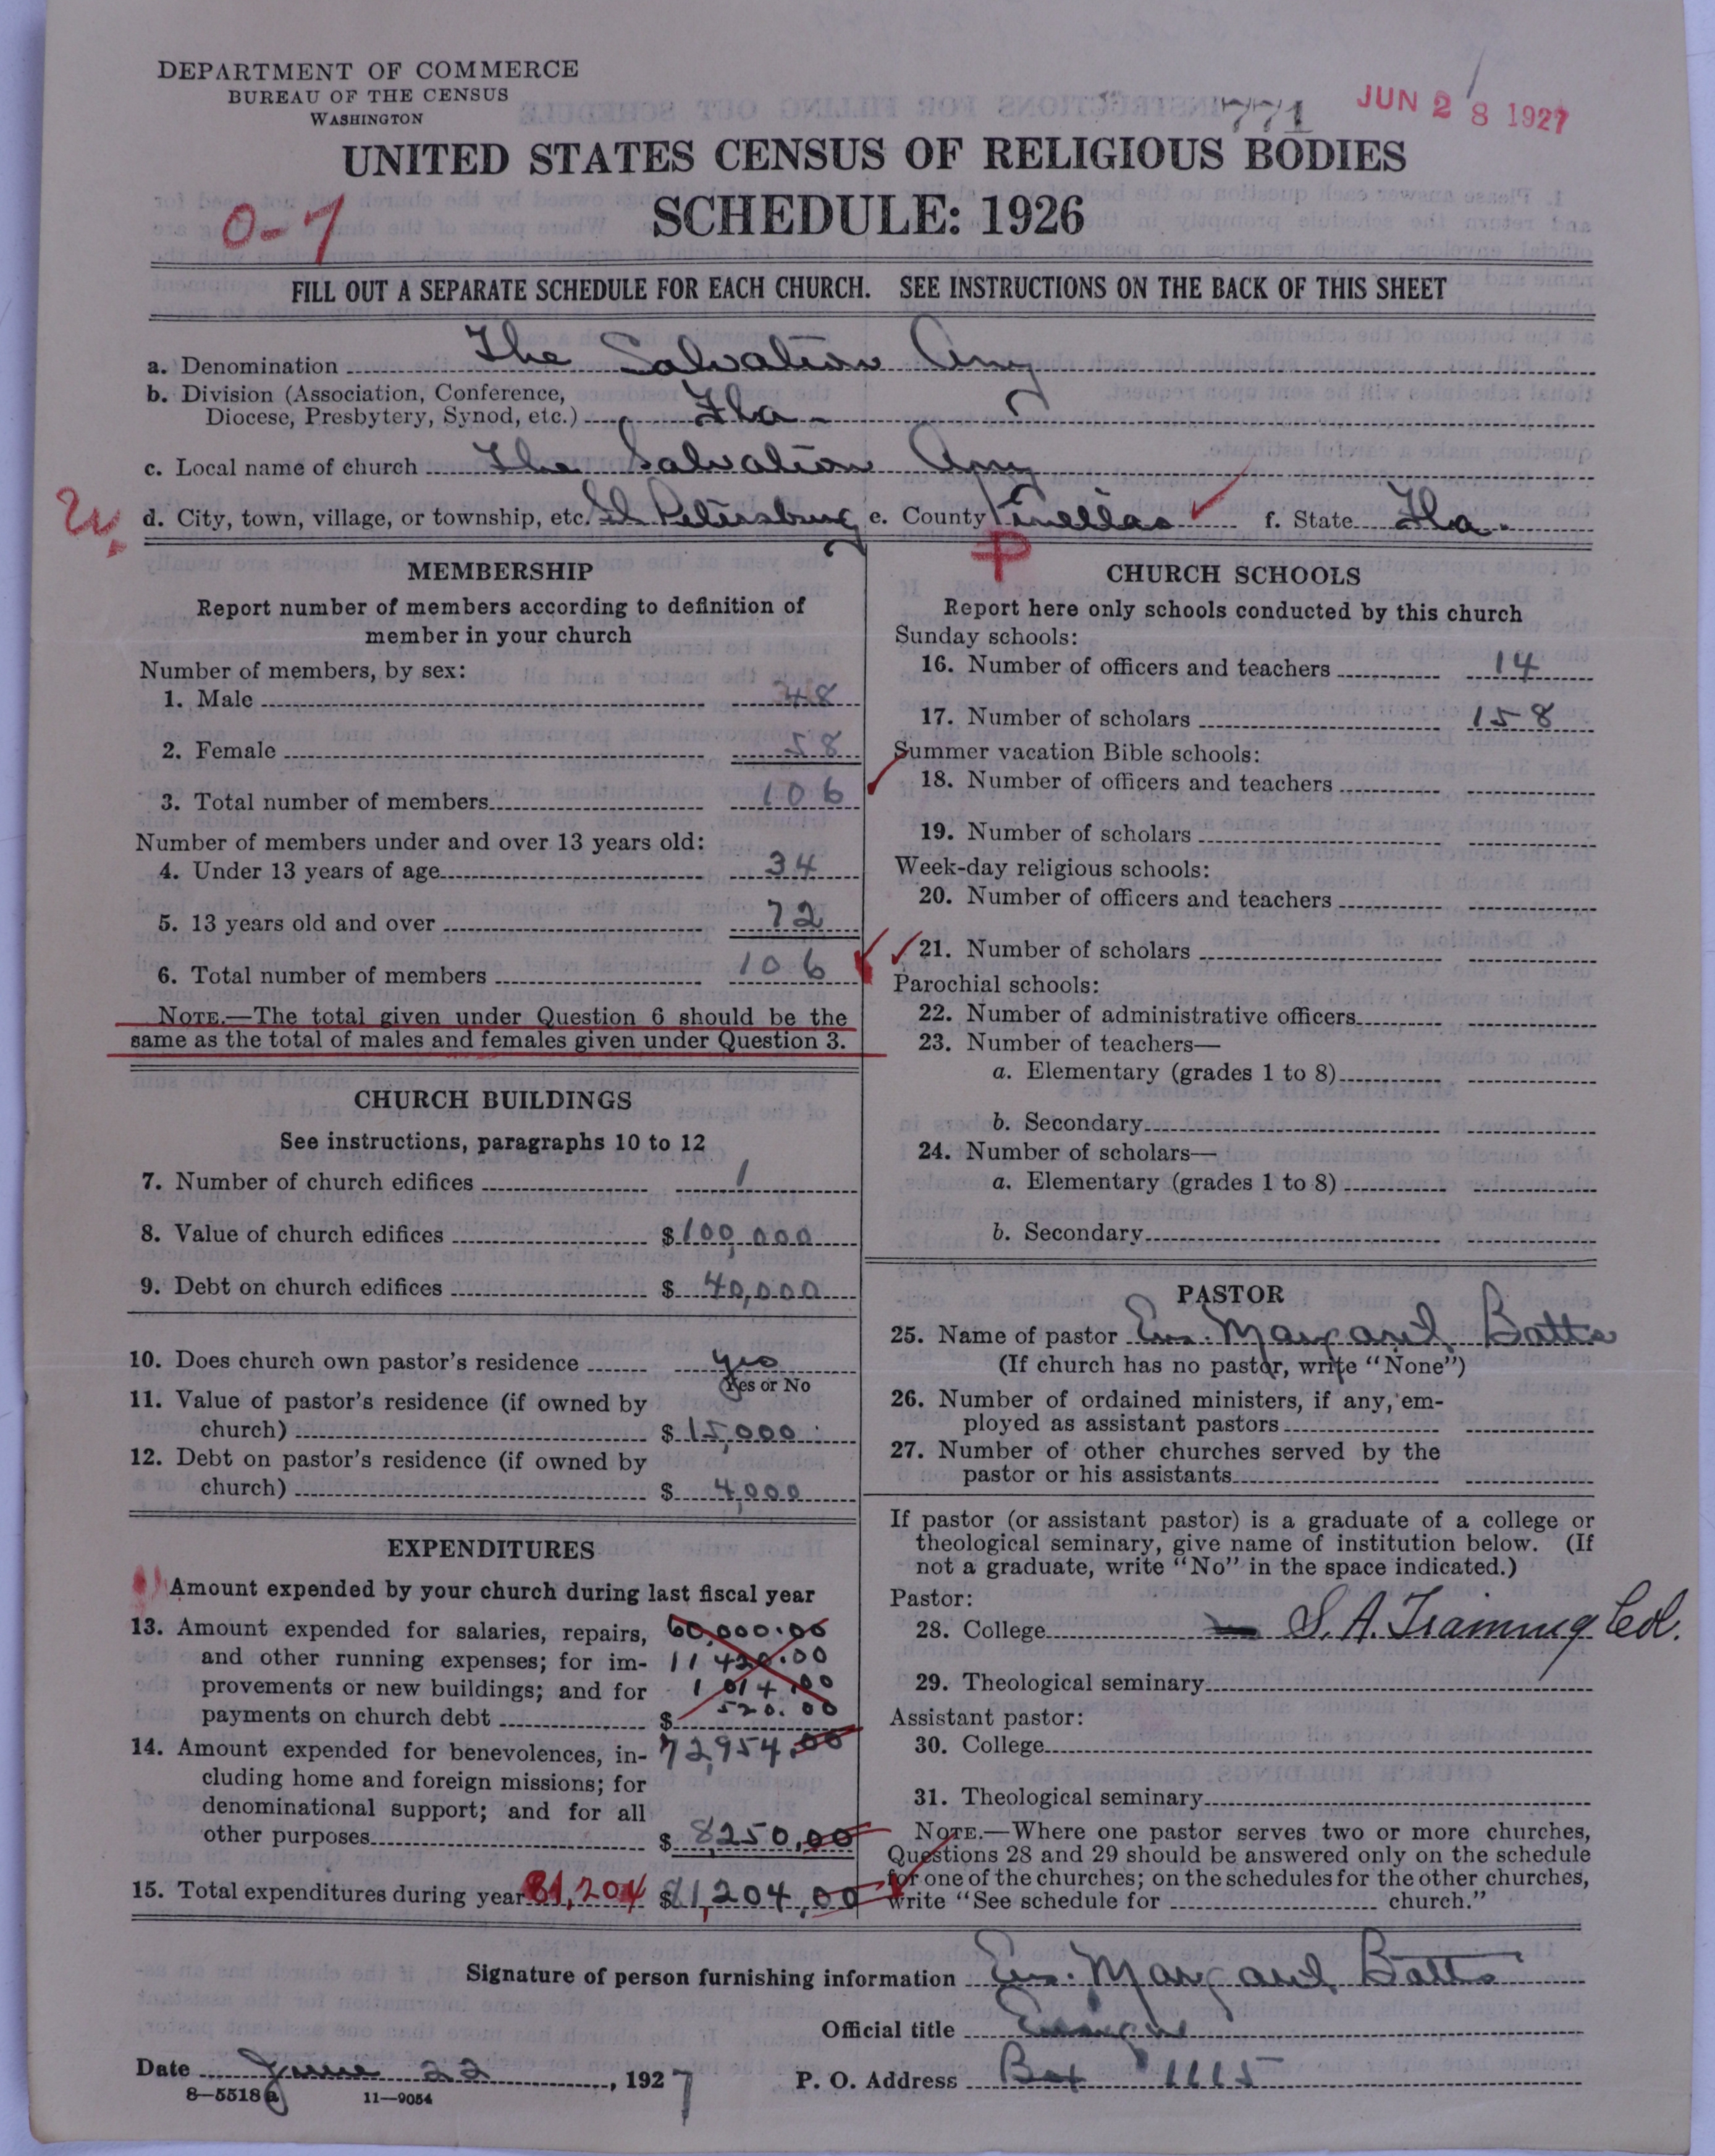 DEPARTMENT OF COMMERCE
BUREAU OF THE CENSUS
WASHINGTON
771
JUN 28 1927
UNITED STATES CENSUS OF RELIGIOUS BODIES
SCHEDULE: 1926
0-7
FILL OUT A SEPARATE SCHEDULE FOR EACH CHURCH. SEE INSTRUCTIONS ON THE BACK OF THIS SHEET
a. Denomination The Salvation Army
b. Division (Association, Conference,
Diocese, Presbytery, Synod, etc.) Fla
c. Local name of church The Salvation Army
d. City, town, village, or township, etc. St Petersburg e. County Pinellas f. State Fla.
P
MEMBERSHIP
Report number of members according to definition of
member in your church
Number of members, by sex:
1. Male 48
2. Female 58
3. Total number of members 106
Number of members under and over 13 years old:
4. Under 13 years of age 34
5. 13 years old and over 72
6. Total number of members 106
NOTE.—The total given under Question 6 should be the
same as the total of males and females given under Question 3.
CHURCH BUILDINGS
See instructions, paragraphs 10 to 12
7. Number of church edifices 1
8. Value of church edifices $100,000
9. Debt on church edifices $ 40,000
10. Does church own pastor's residence yes
Yes or No
11. Value of pastor's residence (if owned by
church) $15,000
12. Debt on pastor's residence (if owned by
church) $ 4,000
EXPENDITURES
Amount expended by your church during last fiscal year
13. Amount expended for salaries, repairs, 60,000.00
and other running expenses; for im- 11 420.00
provements or new buildings; and for 1 014.00
payments on church debt $ 520.00
14. Amount expended for benevolences, in- 72,954.00
cluding home and foreign missions; for
denominational support; and for all
other purposes $ 8250,00
15. Total expenditures during year 81,204 $81,204,00
CHURCH SCHOOLS
Report here only schools conducted by this church
Sunday schools:
16. Number of officers and teachers 14
17. Number of scholars 158
Summer vacation Bible schools:
18. Number of officers and teachers
19. Number of scholars
Week-day religious schools:
20. Number of officers and teachers
21. Number of scholars
Parochial schools:
22. Number of administrative officers
23. Number of teachers—
a. Elementary (grades 1 to 8)
b. Secondary
24. Number of scholars—
a. Elementary (grades 1 to 8)
b. Secondary
PASTOR
25. Name of pastor Ens. Margaret Batts
(If church has no pastor, write "None")
26. Number of ordained ministers, if any, em-
ployed as assistant pastors
27. Number of other churches served by the
pastor or his assistants
If pastor (or assistant pastor) is a graduate of a college or
theological seminary, give name of institution below. (If
not a graduate, write "No" in the space indicated.)
Pastor:
28. College S.A. Training Col.
29. Theological seminary
Assistant pastor:
30. College
31. Theological seminary
NOTE.—Where one pastor serves two or more churches,
Questions 28 and 29 should be answered only on the schedule
for one of the churches; on the schedules for the other churches,
write "See schedule for church."
Signature of person furnishing information Ens. Margaret Batts
Official title Ensign
Date June 22, 1927 P. O. Address Box 1115
8—5518a 11—9054